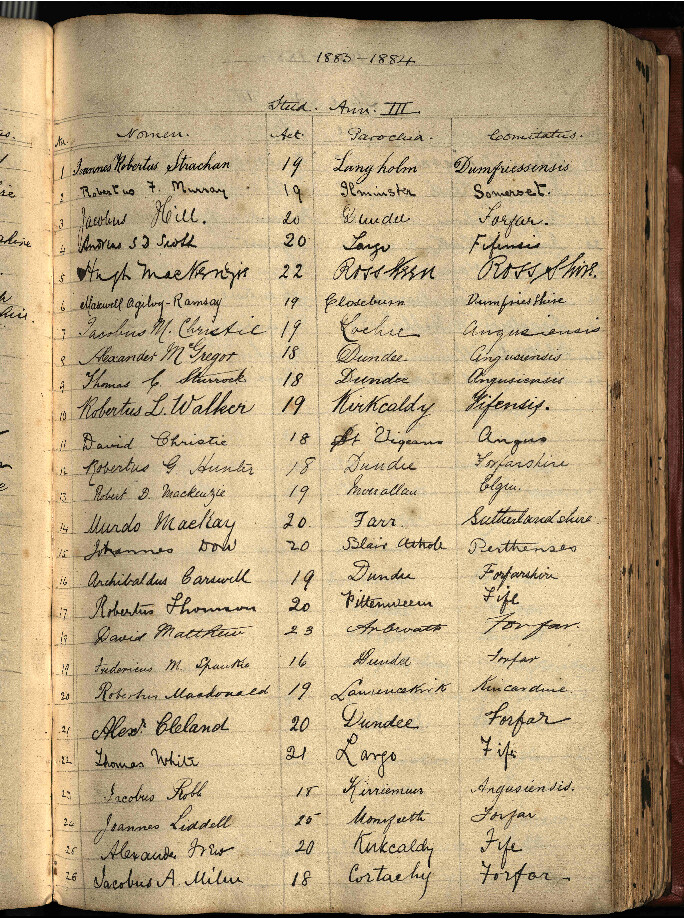 1883-1884
Stud. Ann. III
No. Nomen. Aet. Parochia. Comitatus.
1 Joannes Robertus Strachan 19 Langholm Dumfriessensis
2 Robertus F. Murray 19 Ilminster Somerset.
3 Jacobus Hill. 20 Dundee Forfar.
4 Andreas Scott 20 Largo Fifensis
5 Hugh MacKenzie 22 Rosskeen Ross Shire.
6 Maxwell Ogilvy-Ramsay 19 Closeburn Dumfriesshire
7 Jacobus M. Christie 19 Lochee Angusiensis
8 Alexander McGregor 18 Dundee Angusiensis
9 Thomas C. Sturrock 18 Dundee Angusiensis
10 Robertus L. Walker 19 Kirkcaldy Fifensis.
11 David Christie 18 St Vigeans Angus
12 Robertus G Hunter 18 Dundee Forfarshire
13 Robert D. Mackenzie 19 Elgin.
14 Murdo MacKay 20. Farr. Sutherlandshire.
15 Johannes Dow 20 Blair Athole Perthenses
16 Archibaldus Carswell 19 Dundee Forfarshire
17 Robertus Thomson 20 Pittenweem Fife
18 David Matthew 23 Arbroath Forfar.
19 Fredericus M. Spankie 16 Dundee Forfar
20 Robertus Macdonald 19 Laurencekirk Kincardine.
21 Alexr. Cleland 20 Dundee Forfar
22 Thomas White 21 Largo Fife
23 Jacobus Robb 18 Kirriemuir Angusiensis.
24 Joannes Liddell 25 Monifieth Forfar
25 Alexander 20 Kirkcaldy Fife
26 Jacobus A. Milne 18 Cortachy Forfar